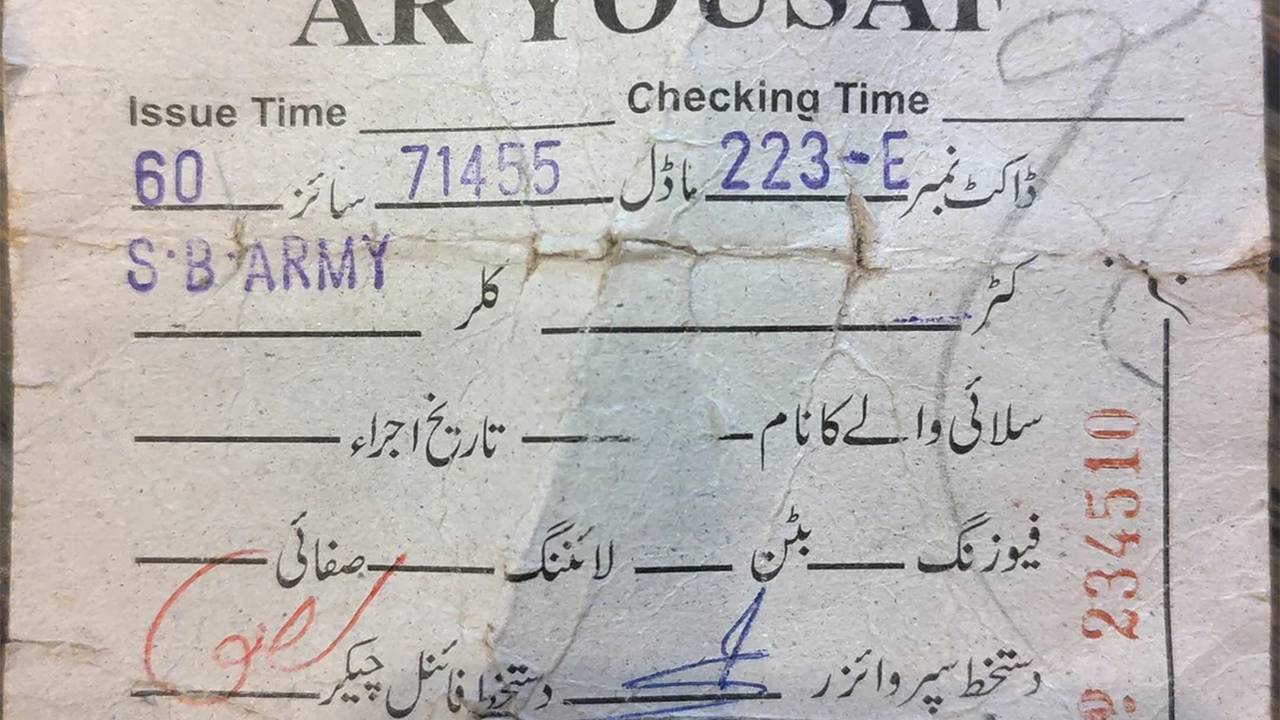 AR YOUSAF
Issue Time Checking Time
ڈاکٹ نمبر 223-E ماڈل 71455 سائز 60
کٹر کلر S·B·ARMY
سلائی والے کا نام تاریخ اجراء
فیوزنگ بٹن لائننگ صفائی
دستخط سپروائزر دستخط فائنل چیکر
234510